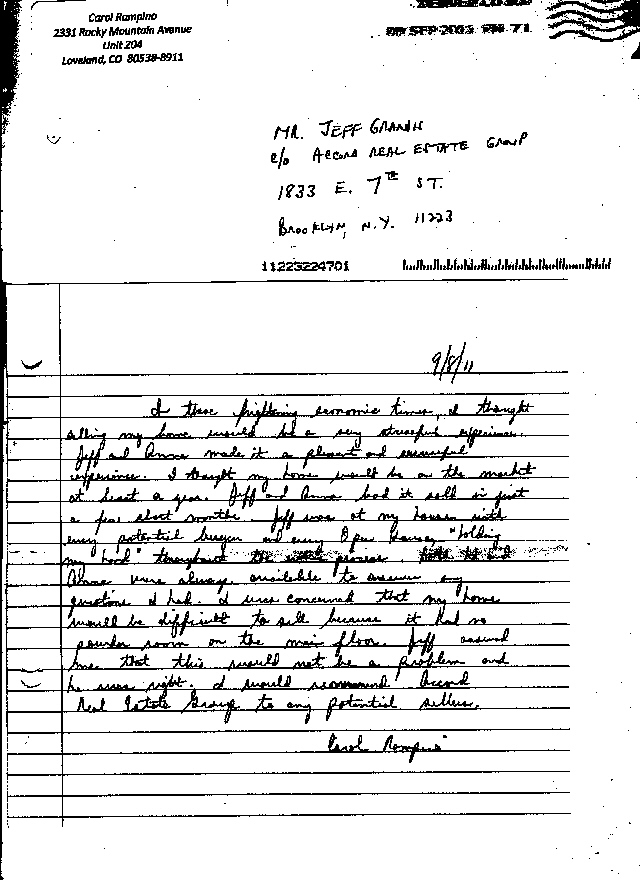 Carol Rampino
2331 Rocky Mountain Avenue
Unit 204
Loveland, CO 80538-8911
SEP 2011 PM 7 1
MR. JEFF
c/o ACCORD REAL ESTATE GROUP
1833 E. 7TH ST.
BROOKLYN, N.Y. 11223
11223224701
9/8/11
In these frightening economic times, I thought
selling my home would be a very stressful experience.
Jeff and Anna made it a pleasant and successful
experience. I thought my home would be on the market
at least a year. Jeff and Anna had it sold in just
a few short months. Jeff was at my house with
every potential buyer and every Open House, "holding
my hand" throughout the entire process. Both he and
Anna were always available to answer any
questions I had. I was concerned that my home
would be difficult to sell because it had no
powder room on the main floor. Jeff assured
me that this would not be a problem and
he was right. I would recommend Accord
Real Estate Group to any potential sellers.
Carol Rampino